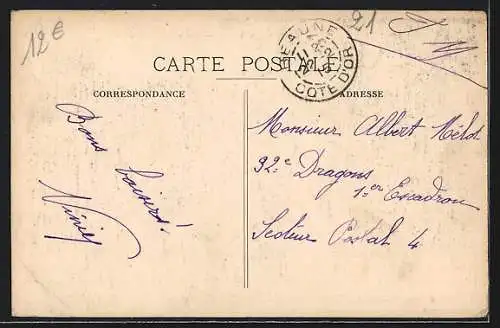 12€
21
BEAUNE
COTE D'OR
CARTE POSTALE
CORRESPONDANCE
ADRESSE
Bons baisers!
Monsieur Albert
92e Dragons
1er Escadron
Secteur Postal 4